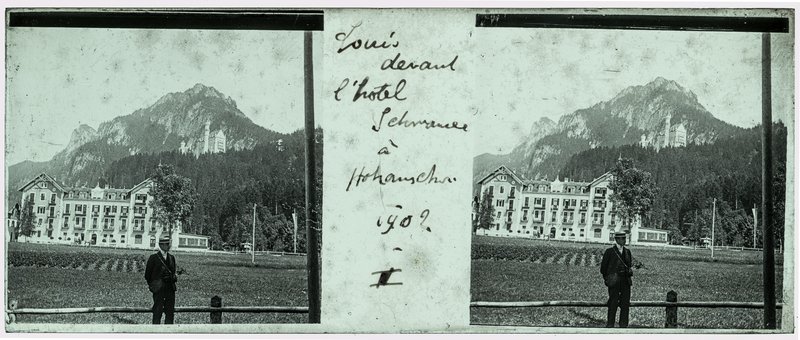 Louis
devant
l'hotel
Schwansee
à
Hohenschw
1902.
II